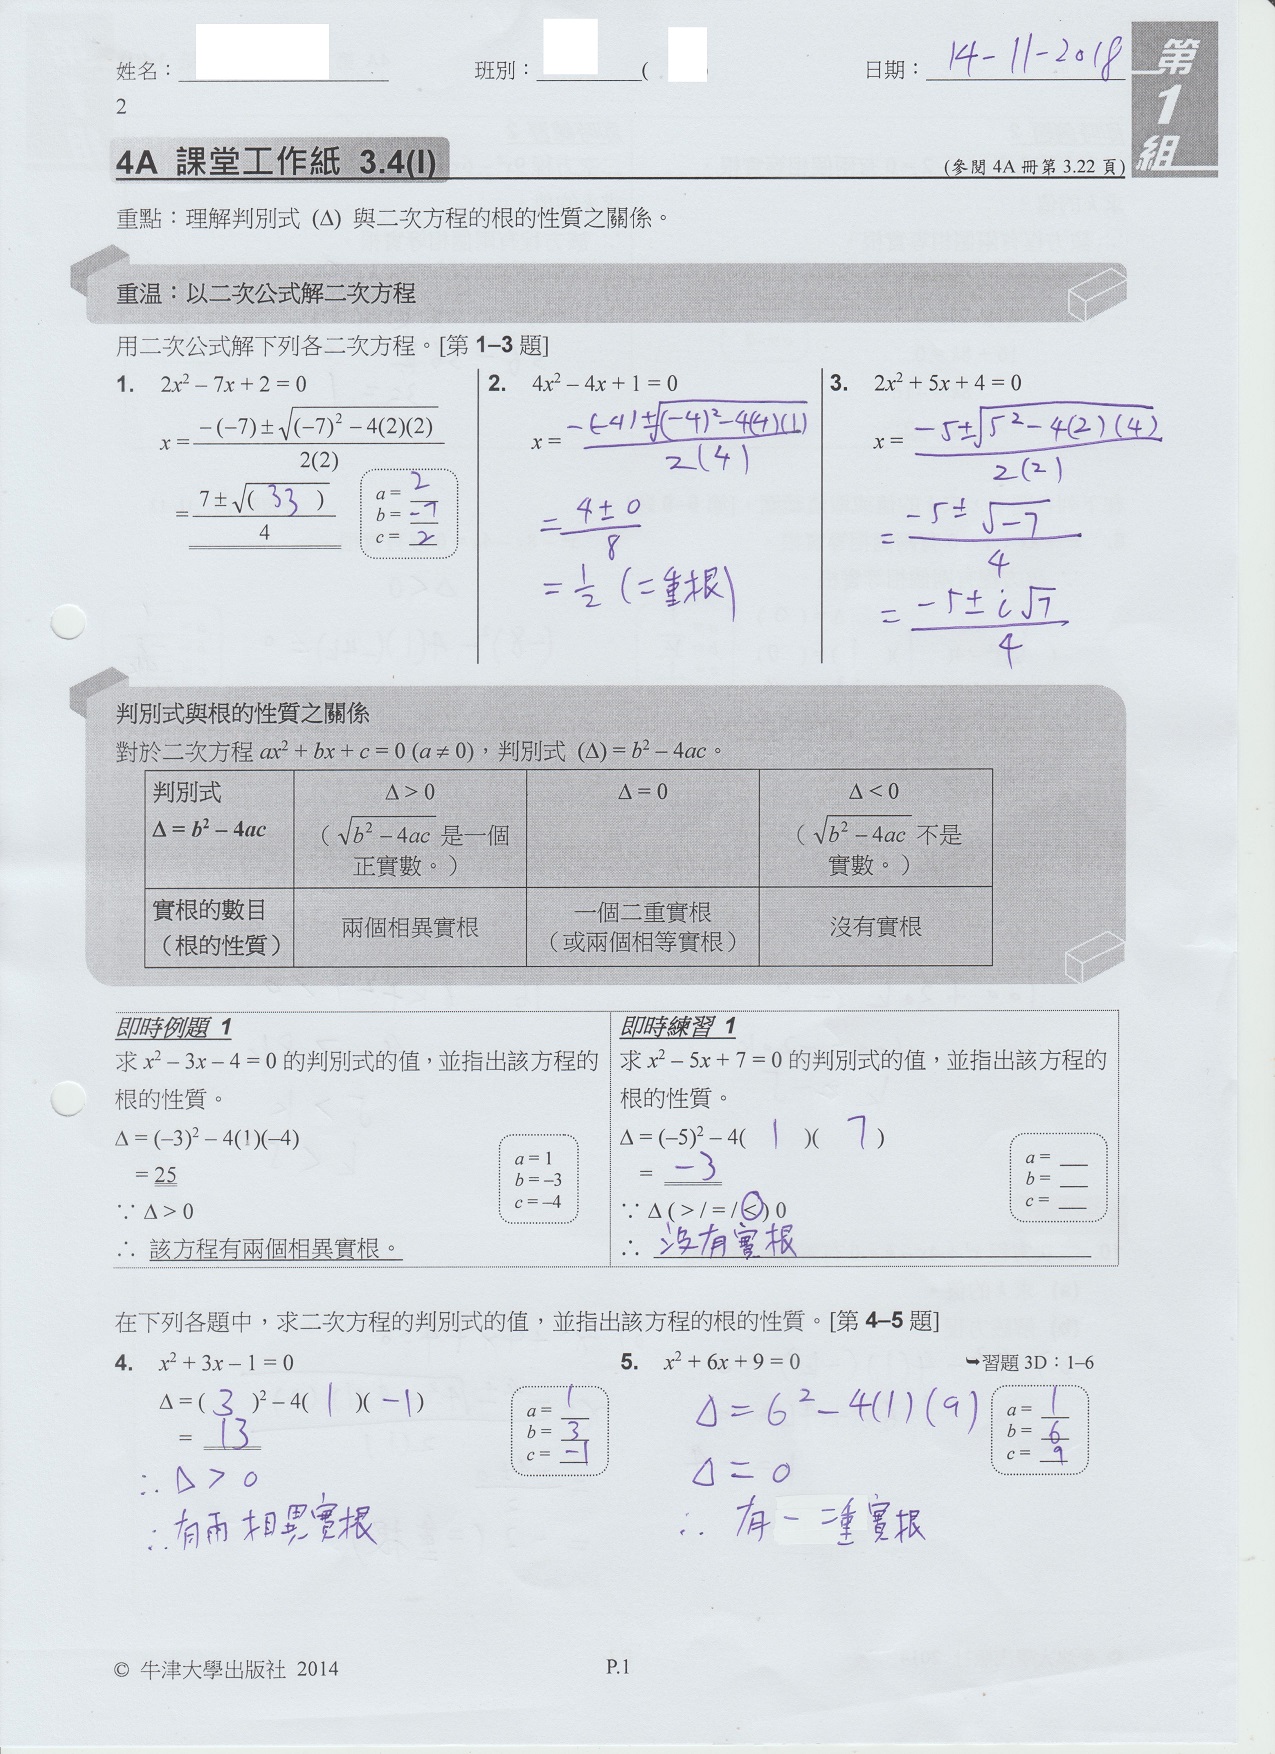 姓名： 班別： ( ) 日期： 14-11-2018
第1組
2
4A 課堂工作紙 3.4(I)
(參閱 4A 冊第 3.22 頁)
重點：理解判別式 (Δ) 與二次方程的根的性質之關係。
重温：以二次公式解二次方程
用二次公式解下列各二次方程。[第 1–3 題]
1. 2x² – 7x + 2 = 0
x = (–(–7) ± √((–7)² – 4(2)(2))) / 2(2)
= (7 ± √( 33 )) / 4
a = 2
b = -7
c = 2
2. 4x² – 4x + 1 = 0
x = (-(-4) ± √((-4)² - 4(4)(1))) / 2(4)
= (4 ± 0) / 8
= 1/2 (二重根)
3. 2x² + 5x + 4 = 0
x = (-5 ± √(5² - 4(2)(4))) / 2(2)
= (-5 ± √-7) / 4
= (-5 ± i√7) / 4
判別式與根的性質之關係
對於二次方程 ax² + bx + c = 0 (a ≠ 0)，判別式 (Δ) = b² – 4ac。
判別式 Δ > 0 Δ = 0 Δ < 0
Δ = b² – 4ac （√(b² – 4ac) 是一個 （√(b² – 4ac) 不是
正實數。） 實數。）
實根的數目 兩個相異實根 一個二重實根 沒有實根
（根的性質） （或兩個相等實根）
即時例題 1
求 x² – 3x – 4 = 0 的判別式的值，並指出該方程的
根的性質。
Δ = (–3)² – 4(1)(–4)
= 25
∵ Δ > 0
∴ 該方程有兩個相異實根。
a = 1
b = –3
c = –4
即時練習 1
求 x² – 5x + 7 = 0 的判別式的值，並指出該方程的
根的性質。
Δ = (–5)² – 4( 1 )( 7 )
= -3
∵ Δ ( > / = / < ) 0
∴ 沒有實根
a = __
b = __
c = __
在下列各題中，求二次方程的判別式的值，並指出該方程的根的性質。[第 4–5 題]
4. x² + 3x – 1 = 0
Δ = ( 3 )² – 4( 1 )( -1 )
= 13
∴ Δ > 0
∴ 有兩相異實根
a = 1
b = 3
c = -1
5. x² + 6x + 9 = 0
➥習題 3D：1–6
Δ = 6² - 4(1)(9)
Δ = 0
∴ 有一二重實根
a = 1
b = 6
c = 9
© 牛津大學出版社 2014
P.1